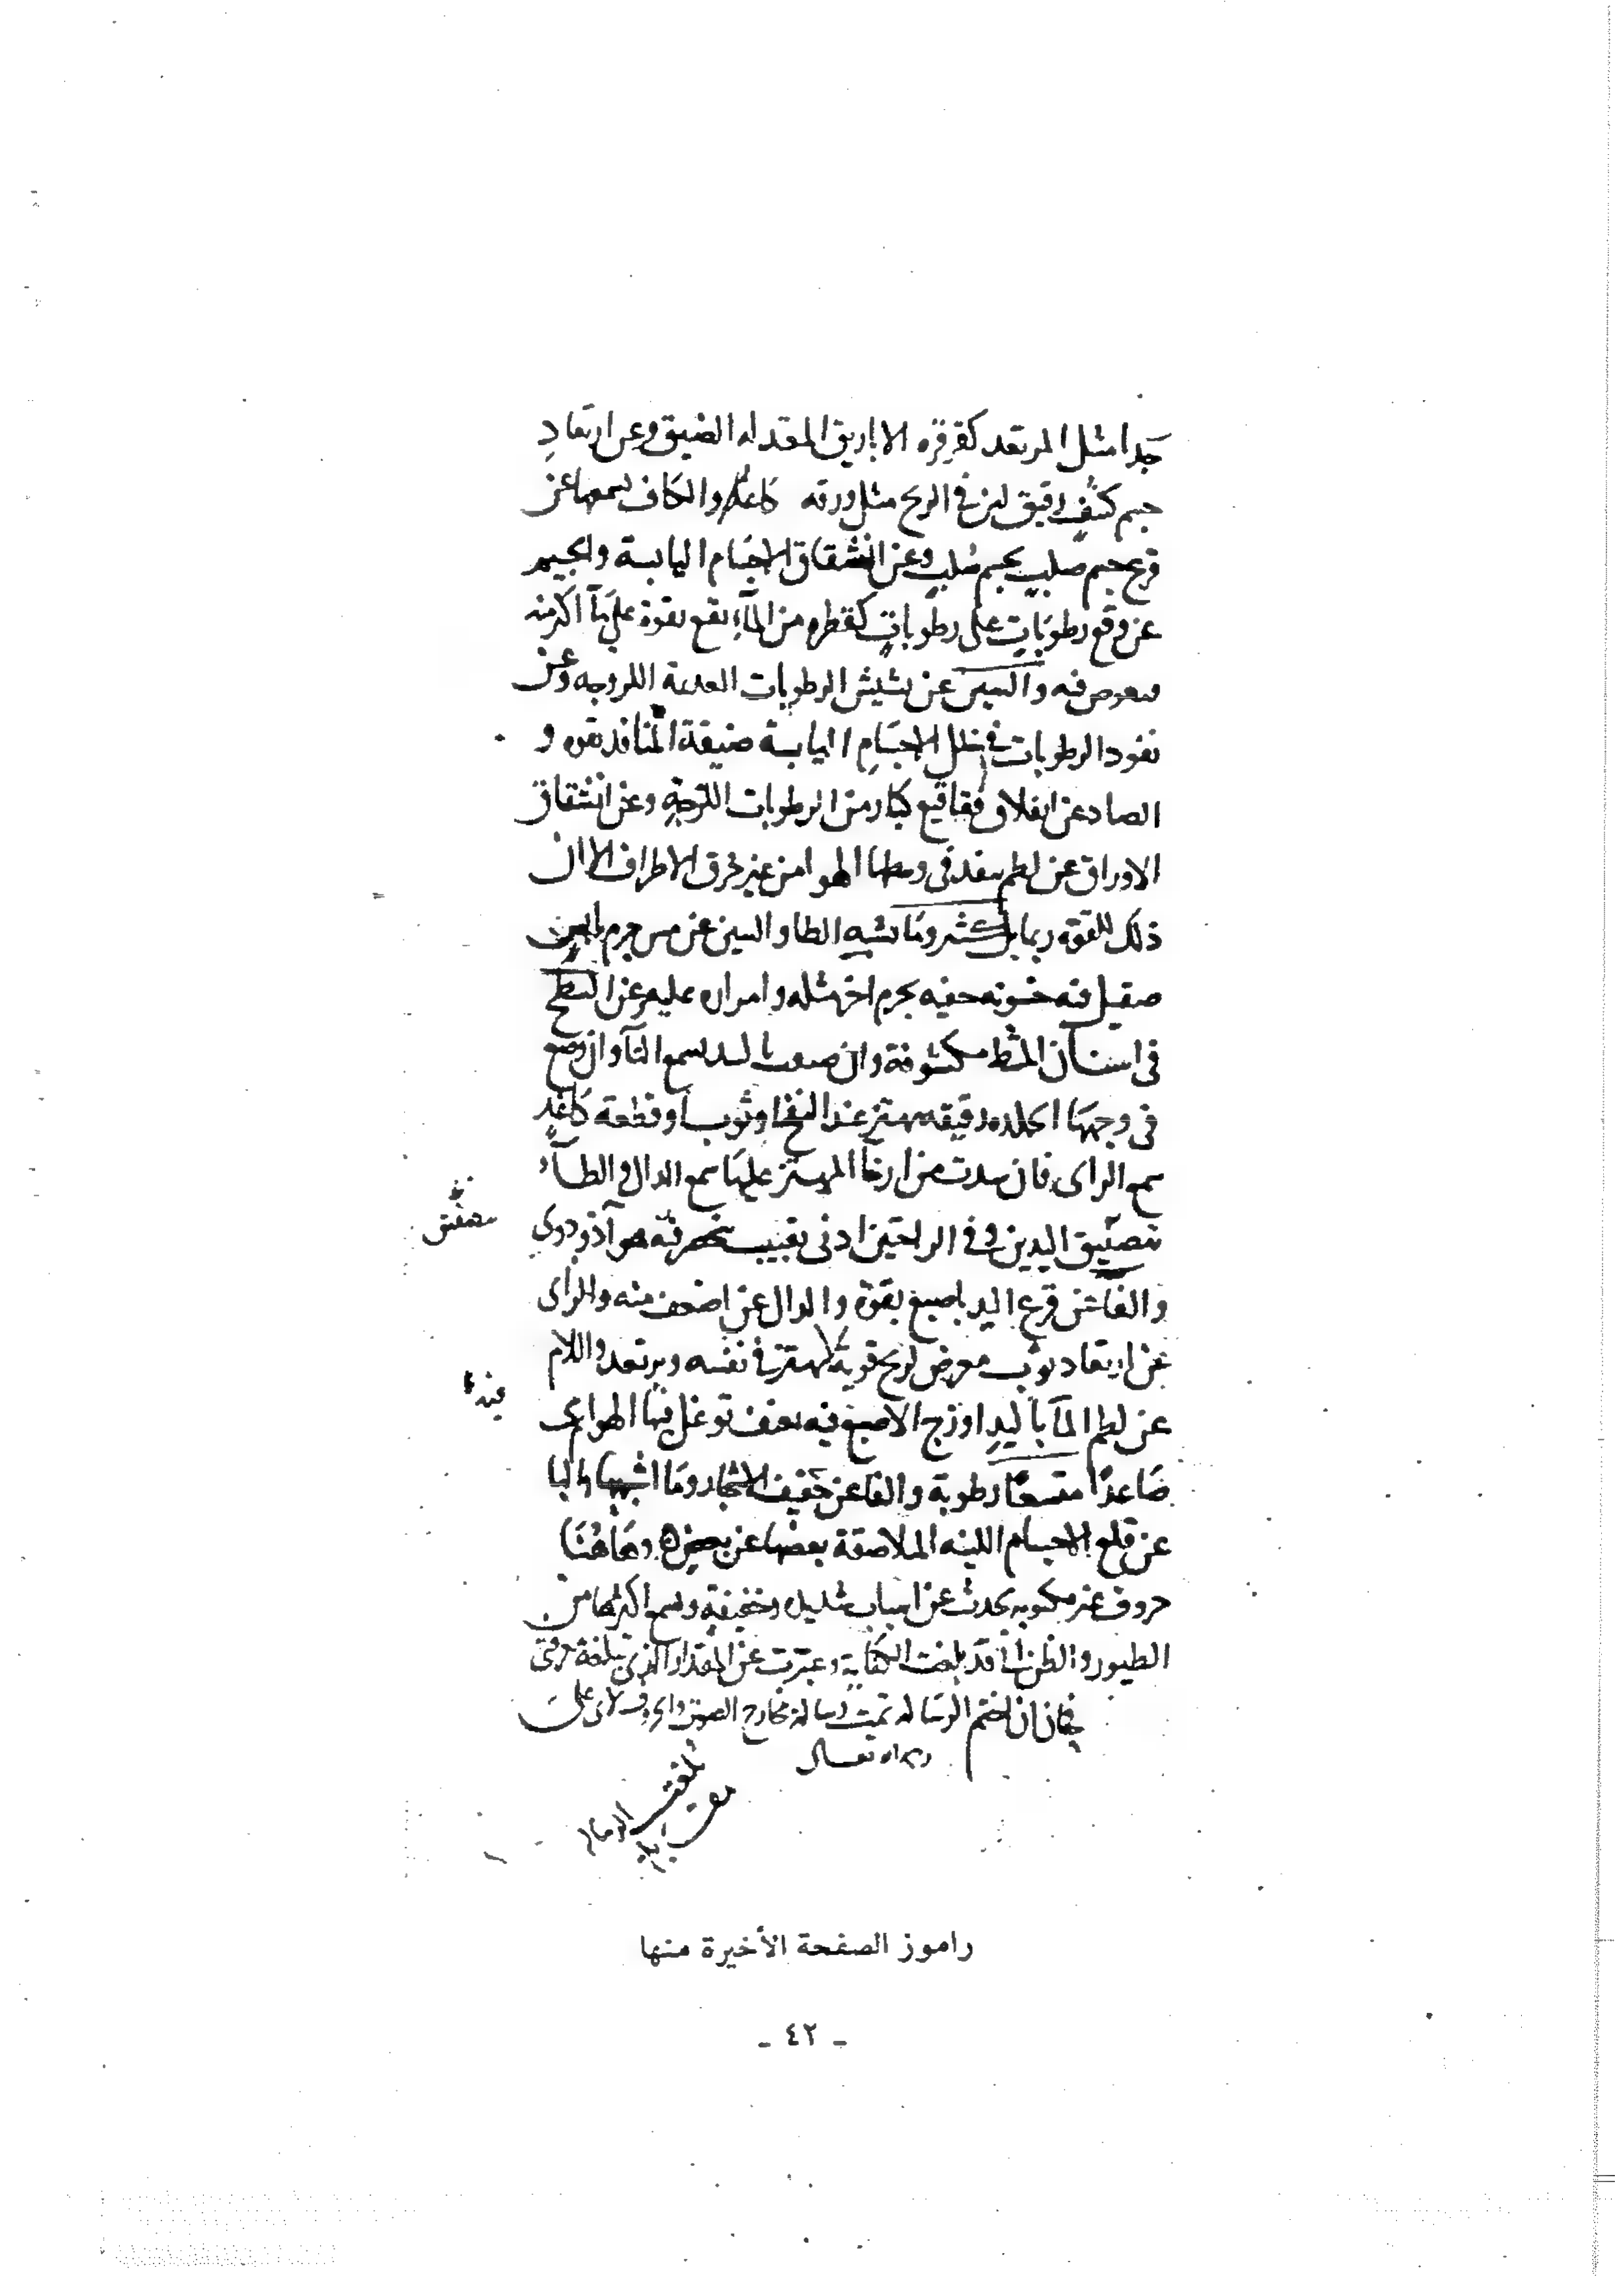 جدا مثل المرتعد كقرقره الاباريق المقدار الضيق وعن ارتعاد
جسم كثيف رقيق لين في الريح مثل ورقه كاغد والكاف تسمعها عن
قرع جسم صلب بجسم صلب وعن انشقاق الاجسام اليابسة والجيم
عن وقع رطوبات على رطوبات كقطره من الماء تقع بقوة على ماء اكثر منه
فتغوص فيه والشين عن نشيش الرطوبات اللزوجه وعن
نفوذ الرطوبات في خلل الاجسام اليابسة ضيقة المنافذ بقوه و
الصاد عن انفلاق فقاقيع كبار من الرطوبات اللزجه وعن انشقاق
الاوراق عن لطم ينفذ في وسطها الهوا من غير خرق الاطراف الا ان
ذلك للقوه ربما وما يشبه الطا والسين عن مس جرم يابس
صقيل فيه خشونه خفيه بجرم اخر مثله وامراره عليه وعن النفخ
في اسنان المشط مكشوفة وان باليد سمع الثاء وان وضع
في وجهها جلده رقيقه تهتز عند النفخ او ثوب او قطعة كاغد
سمع الزاى فان المهتز عليها سمع الذال والطاء
تصفيق اليدين وفي الراحتين ادنى تقبيب ينحصر فيه هواء ذو دوي
تصفيق
والقاف عن قرع اليد باصبع بقوة والدال عن اضعف منه والراى
عن ارتعاد ثوب معرض لريح قوية لا يهتز في نفسه ويرتعد واللام
عن لطم الماء باليد او زج الاصبع فيه بعنف توغل فيها الهواء
عنه
صاعدا رطوبة والفا عن حفيف الاشجار وما اشبهها والبا
عن قلع الاجسام اللينه الملاصقة بعضها عن بعض وهاهنا
حروف غير مكتوبه تحدث عن اسباب ثقيله وخفيفة وسمع اكثرها من
الطيور والظن انى قد بلغت الكفاية وعبرت عن المقدار الذي تبلغه معرفتى
فحان ان اختم الرسالة تمت رسالة مخارج الصوت والحروف لابى على
رحمه الله تعالى
راموز الصفحة الأخيرة منها
- ٤٢ -